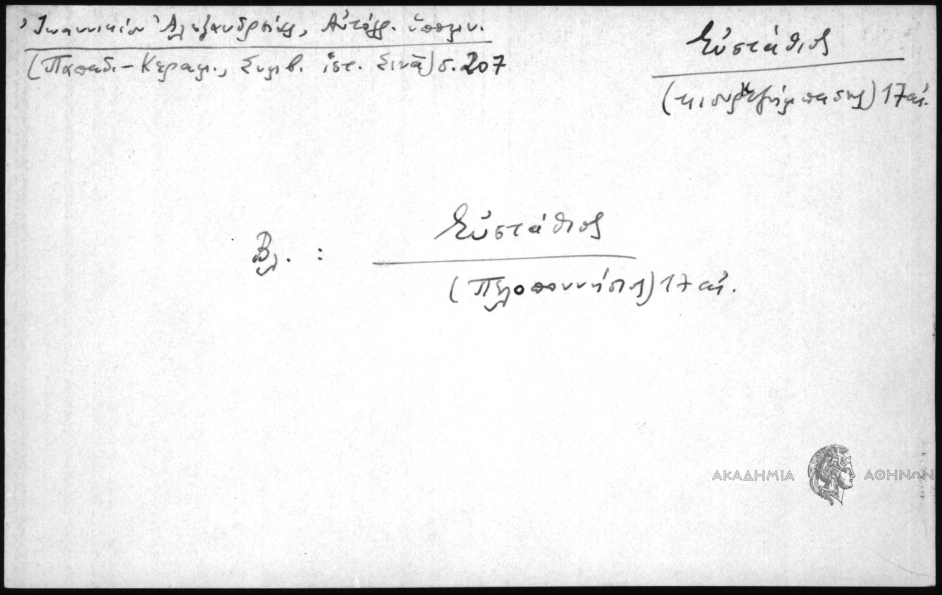 Ἰωαννικίου Ἀλεξανδρείας, Αὐτόγρ. ὑπομν.
(Παπαδ.-Κεραμ., Συμβ. ἱστ. Σινᾶ) σ. 207
Εὐστάθιος
17 αἰ.
Βλ. : Εὐστάθιος
(Πελοποννήσιος) 17 αἰ.
ΑΚΑΔΗΜΙΑ ΑΘΗΝΩΝ